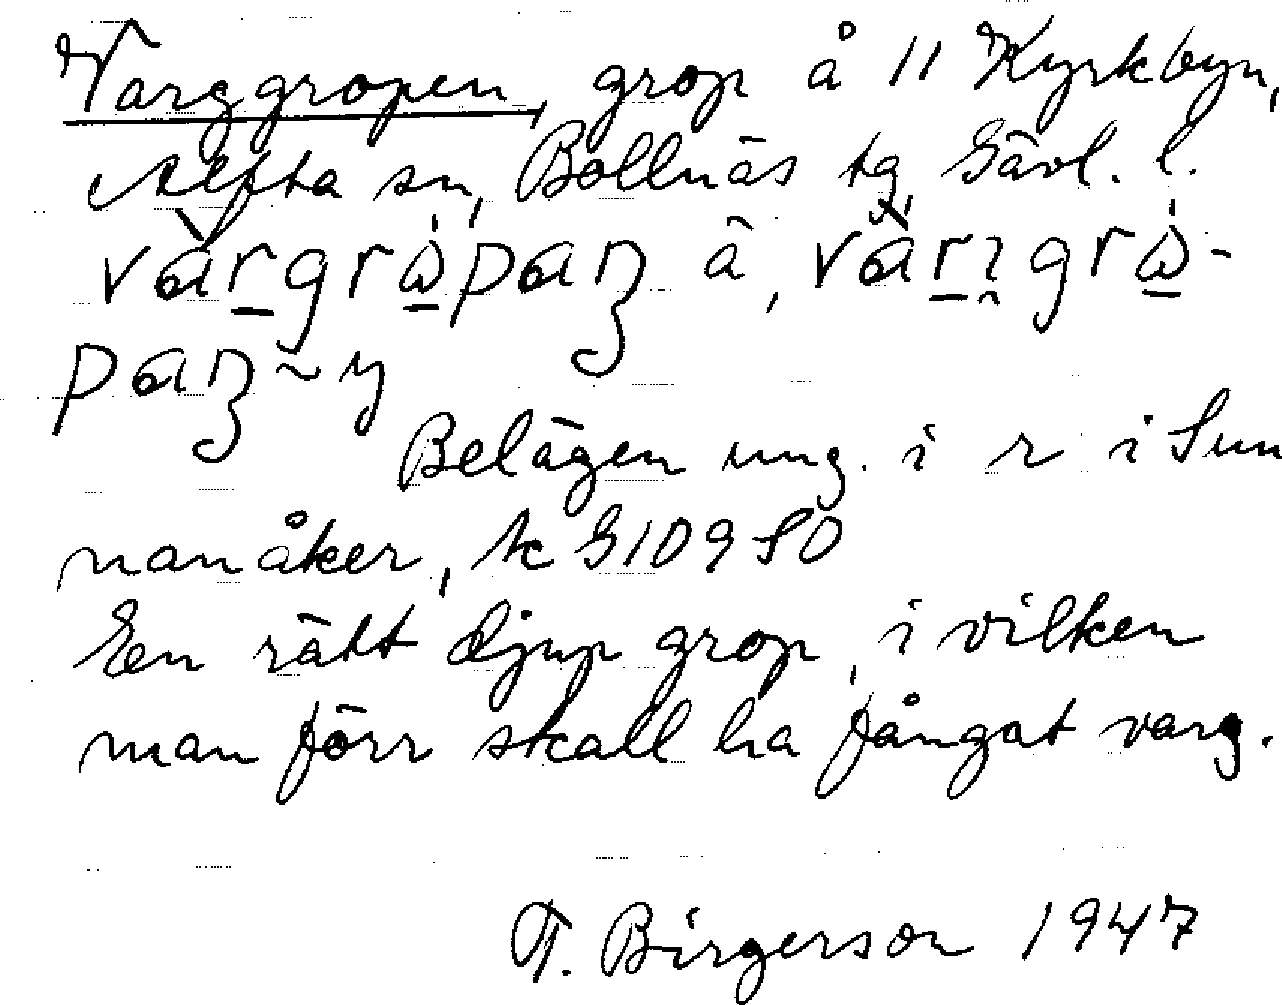 Varggropen, grop å 11 Kyrkbyn,
Alfta sn, Bollnäs tg, Gävl. l.
vàrgròpaꞃ â, vàrıgrò-
paꞃ ~ y
Belägen ung. i r i Sun
nanåker, k G10950
En rätt djup grop, i vilken
man förr skall ha fångat varg.
T. Birgerson 1947